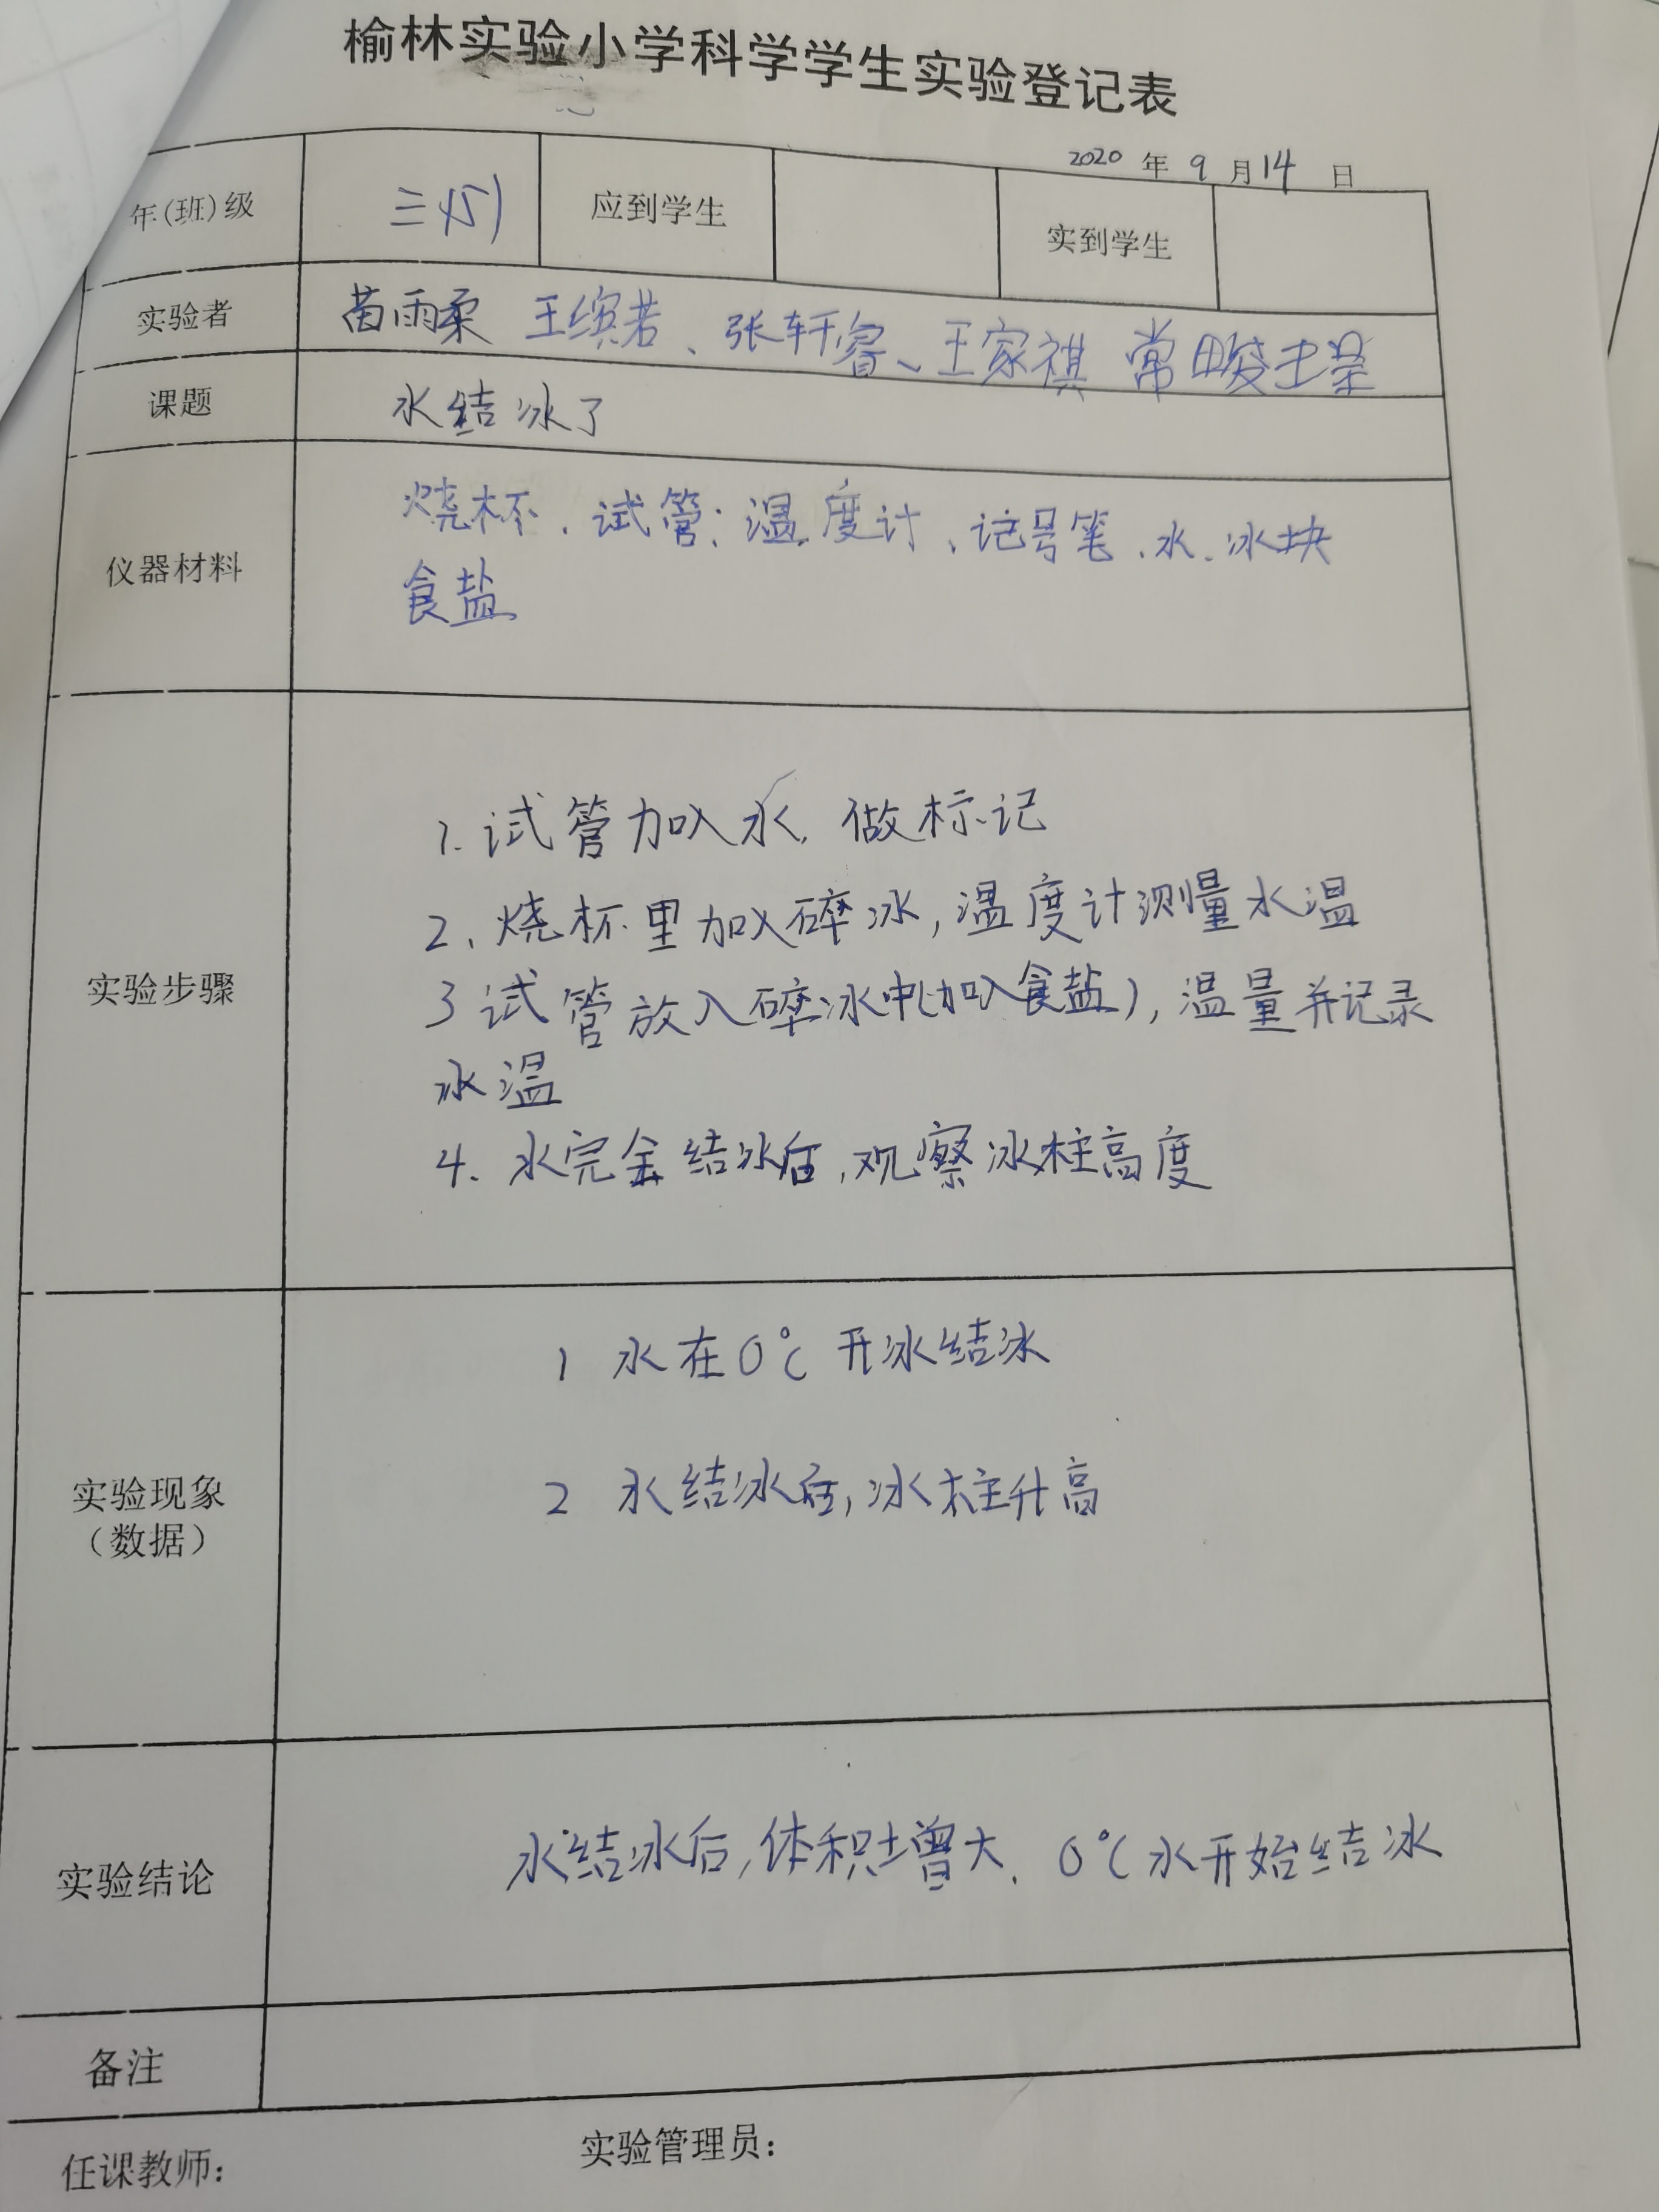 榆林实验小学科学学生实验登记表
2020 年 9 月 14 日
年(班)级 三(5) 应到学生 实到学生
实验者 苗雨柔 王缤若、张轩睿、王家祺 常
课题 水结冰了
仪器材料 烧杯、试管、温度计、记号笔、水、冰块
食盐
实验步骤
1. 试管加入水, 做标记
2、烧杯里加入碎冰, 温度计测量水温
3 试管放入碎冰中(加入食盐), 温量并记录
水温
4. 水完全结冰后, 观察冰柱高度
实验现象
(数据)
1 水在0℃ 开冰结冰
2 水结冰后, 冰柱升高
实验结论 水结冰后, 体积增大. 0℃水开始结冰
备注
任课教师: 实验管理员: